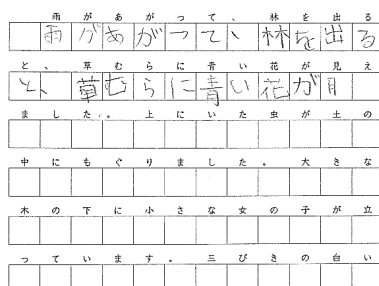 雨があがって、林を出る
雨があがって、林を出る
と、草むらに青い花が見え
と、草むらに青い花が
ました。上にいた虫が土の
中にもぐりました。大きな
木の下に小さな女の子が立
っています。三びきの白い